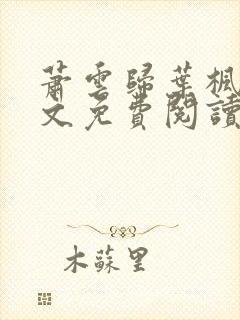 蕭雲歸葉楓
文免費閱讀
木蘇里